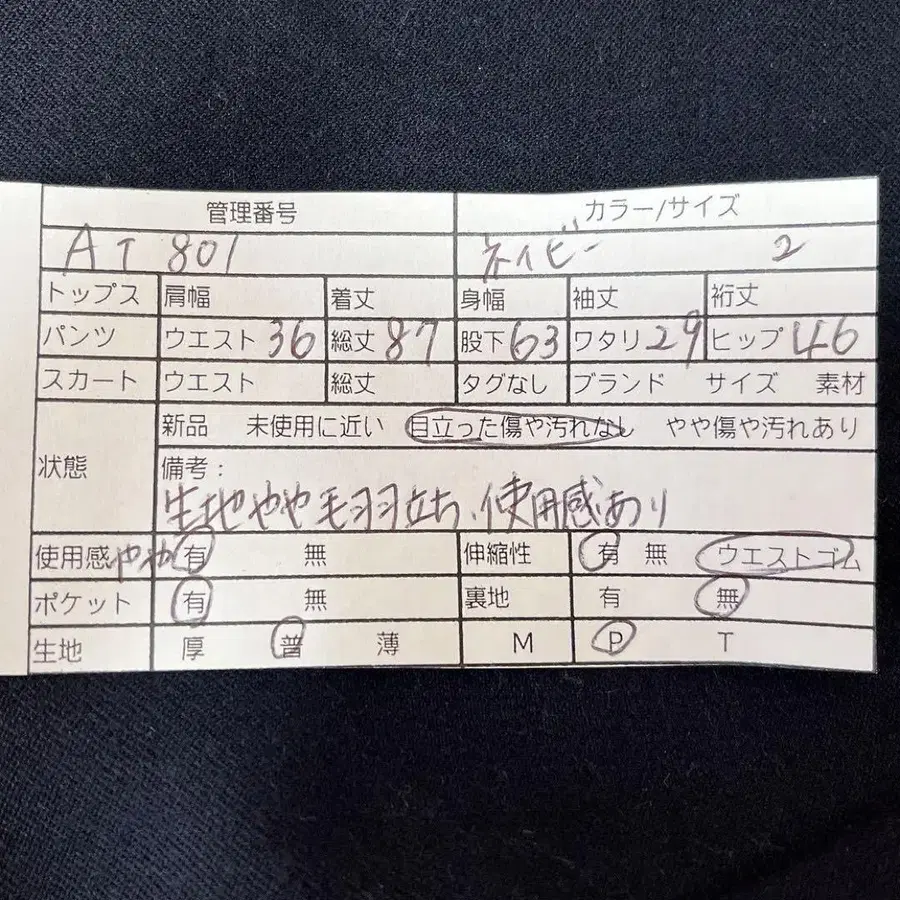 管理番号 カラー/サイズ
AT 801 ネイビー 2
トップス 肩幅 着丈 身幅 袖丈 裄丈
パンツ ウエスト 36 総丈 87 股下 63 ワタリ 29 ヒップ 46
スカート ウエスト 総丈 タグなし ブランド サイズ 素材
状態 新品 未使用に近い 目立った傷や汚れなし やや傷や汚れあり
備考：
生地やや毛羽立ち、使用感あり
使用感 やや 有 無 伸縮性 有 無 ウエストゴム
ポケット 有 無 裏地 有 無
生地 厚 普 薄 M P T